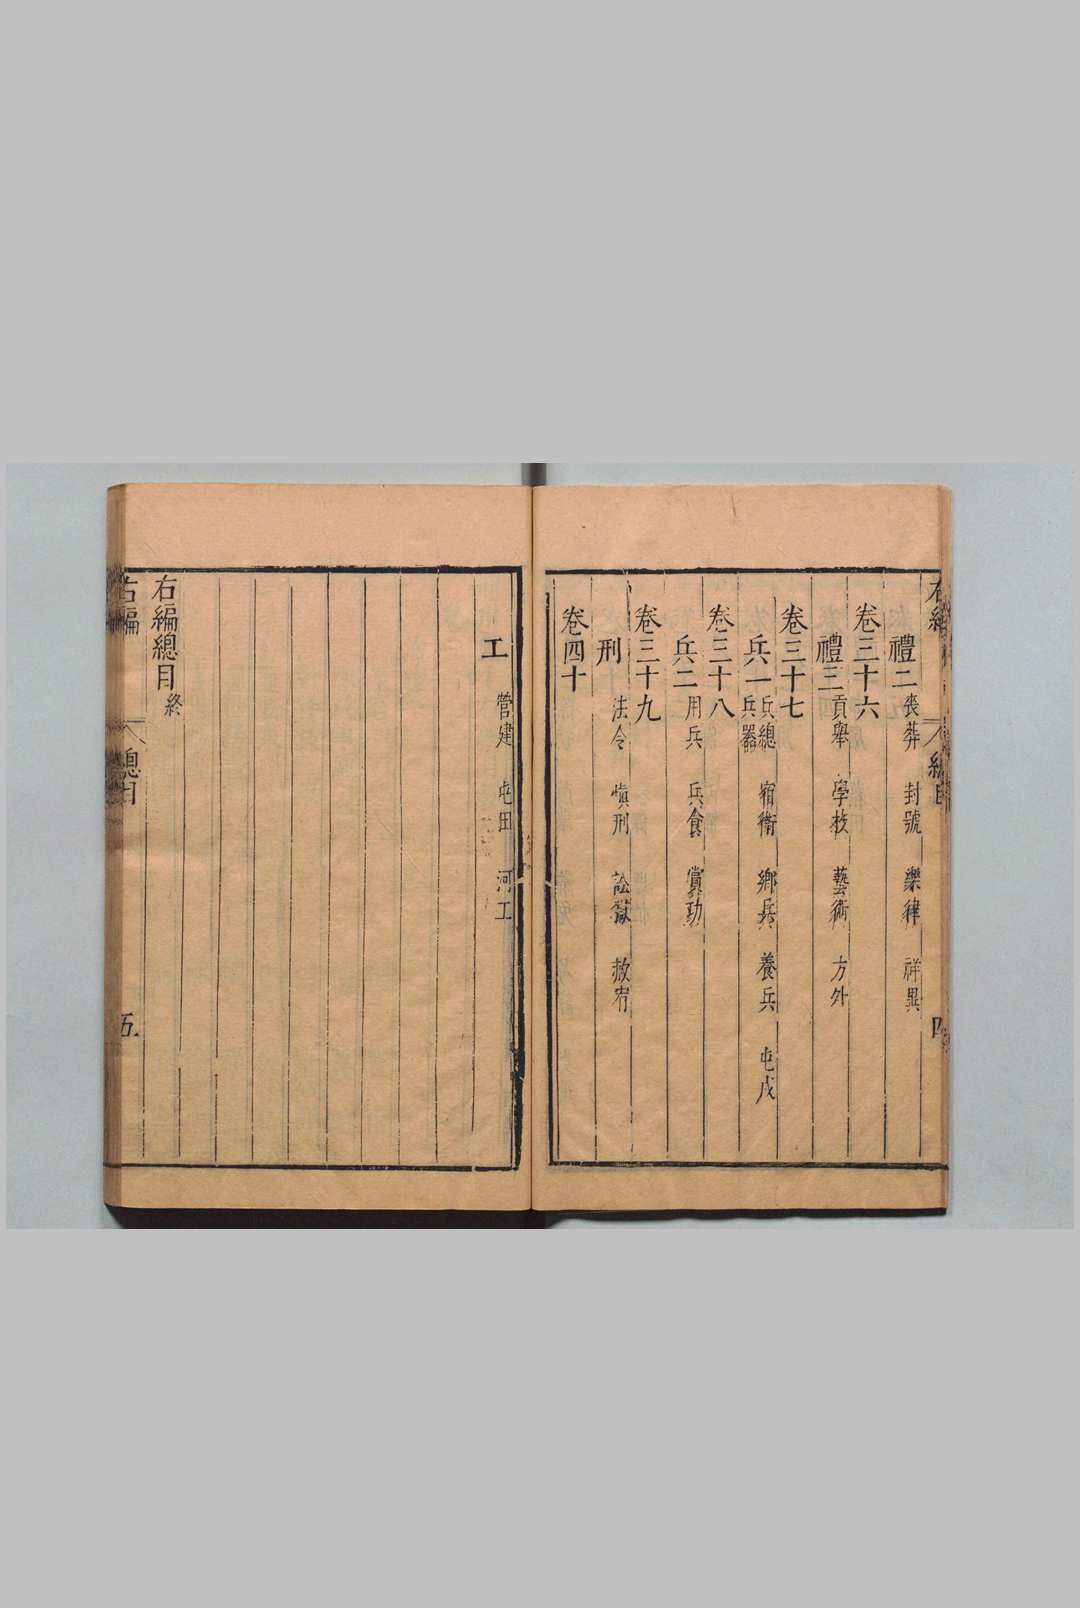 禮二 喪葬 封號 樂律 祥異
卷三十六
禮三 貢舉 學校 藝術 方外
卷三十七
兵一 兵總 宿衛 鄉兵 養兵 屯戍
兵器
卷三十八
兵二 用兵 兵食 賞功
卷三十九
刑 法令 慎刑 訟獄 赦宥
卷四十
工 營建 屯田 河工
右編總目終
右編
總目
五